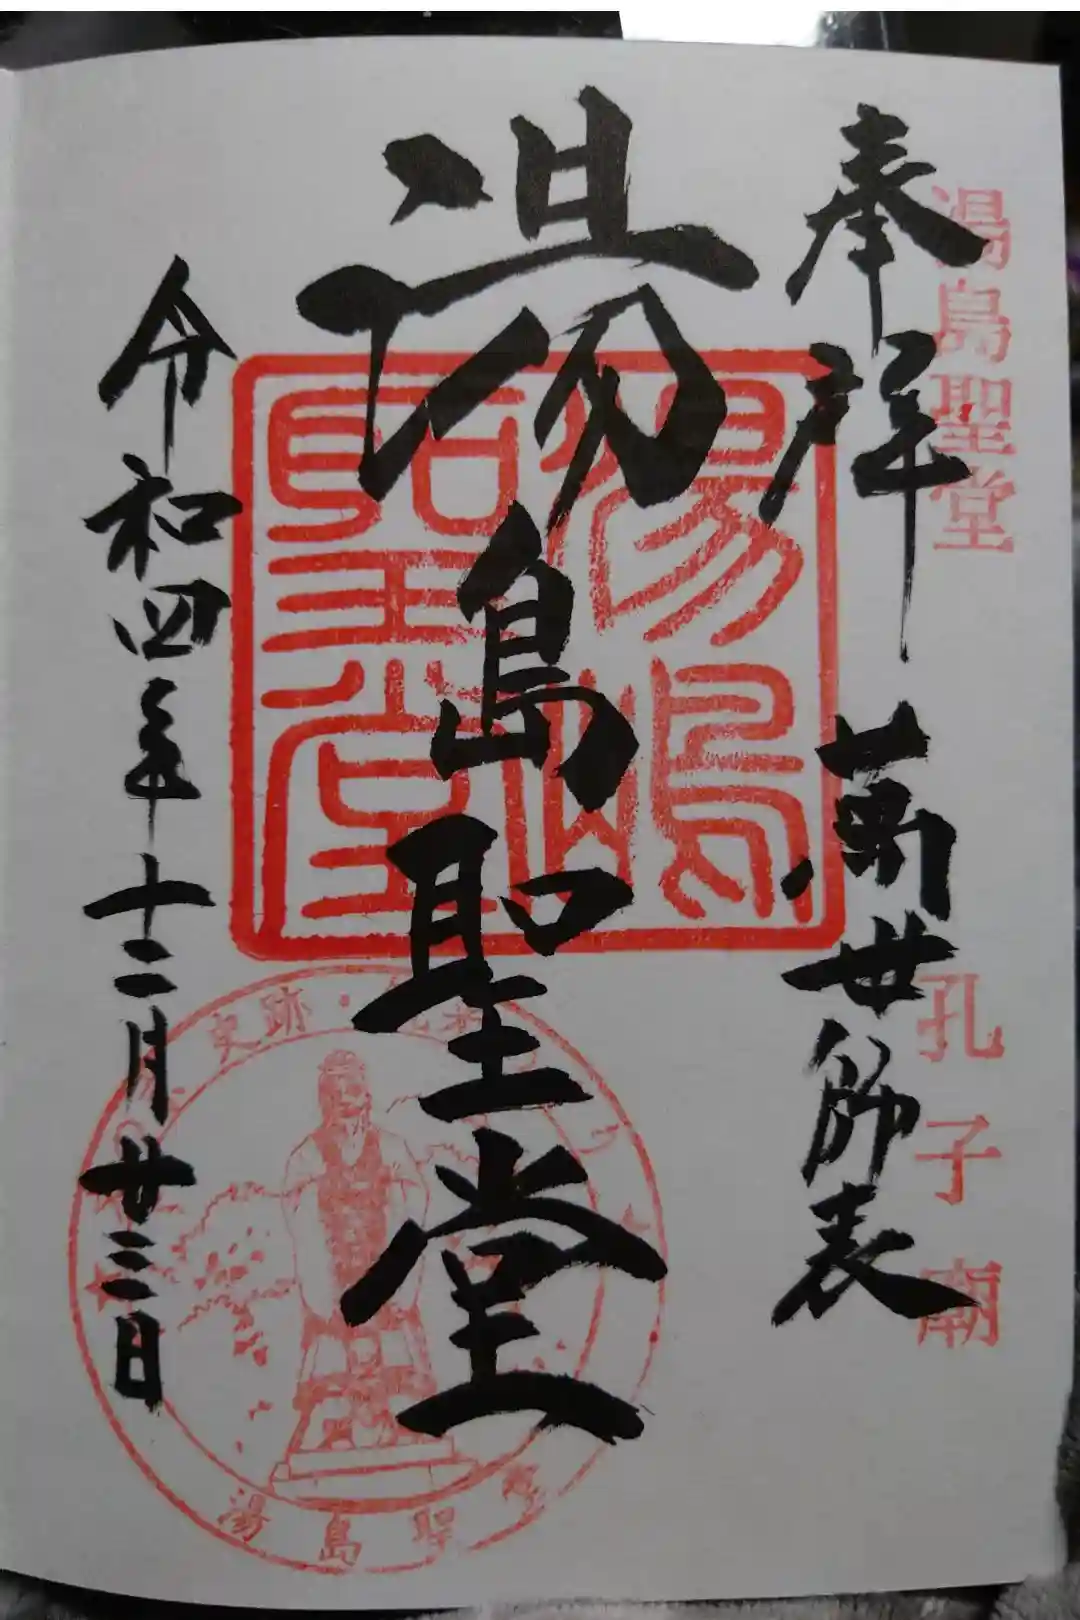 湯島聖堂
孔子廟
奉拝 萬世師表
湯島聖堂
湯島聖堂
令和四年十二月廿三日
史跡・
湯島聖堂